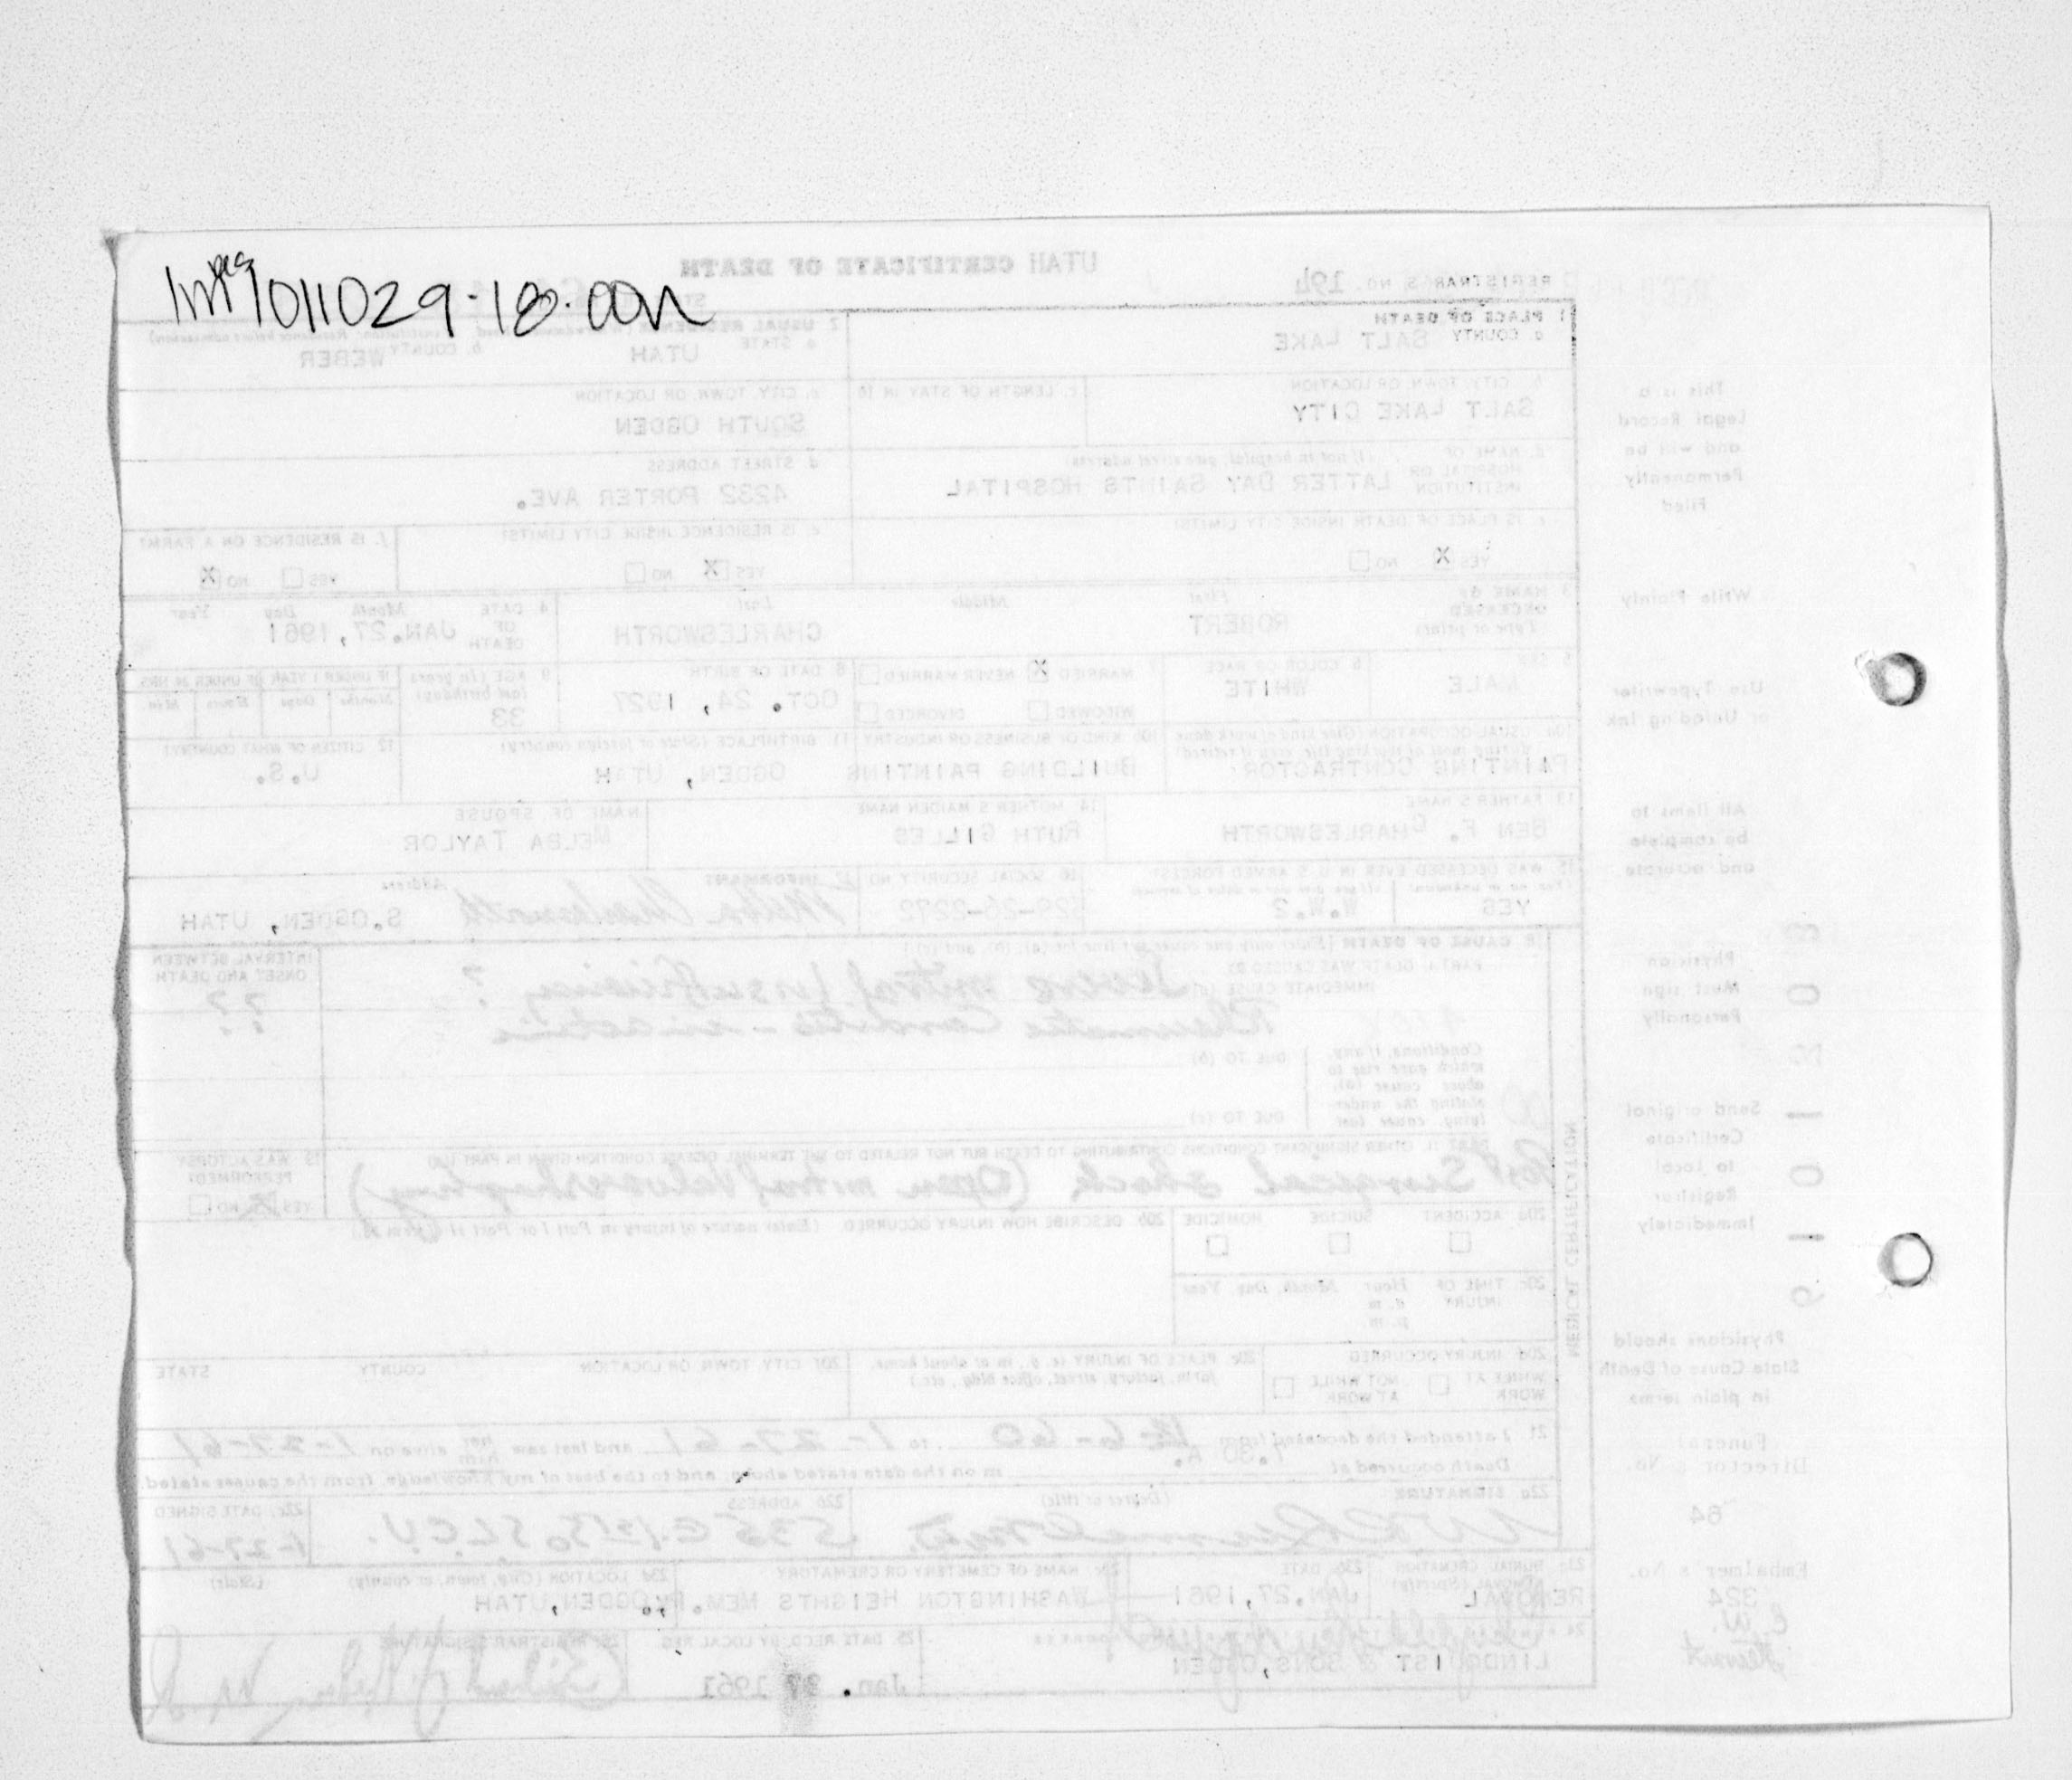 1mpg1011029-18.00n
UTAH CERTIFICATE OF DEATH
REGISTRAR'S NO. 194
1 PLACE OF DEATH
a. COUNTY SALT LAKE
2 USUAL RESIDENCE
a. STATE UTAH b. COUNTY WEBER
b. CITY, TOWN, OR LOCATION
SALT LAKE CITY
c. LENGTH OF STAY IN 1b
c. CITY, TOWN, OR LOCATION
SOUTH OGDEN
d. NAME OF HOSPITAL OR INSTITUTION (If not in hospital, give street address)
LATTER DAY SAINTS HOSPITAL
d. STREET ADDRESS
4232 PORTER AVE.
e. IS PLACE OF DEATH INSIDE CITY LIMITS?
YES X NO
e. IS RESIDENCE INSIDE CITY LIMITS?
YES X NO
f. IS RESIDENCE ON A FARM?
YES NO X
3 NAME OF DECEASED (Type or print)
First Middle Last
ROBERT CHARLESWORTH
4. DATE OF DEATH Month Day Year
JAN.27,1961
5. SEX
MALE
6 COLOR OR RACE
WHITE
7. MARRIED X NEVER MARRIED
WIDOWED DIVORCED
8 DATE OF BIRTH
OCT. 24, 1927
9 AGE (In years last birthday)
33
IF UNDER 1 YEAR IF UNDER 24 HRS.
Months Days Hours Min.
10a. USUAL OCCUPATION (Give kind of work done during most of working life, even if retired)
PAINTING CONTRACTOR
10b. KIND OF BUSINESS OR INDUSTRY
BUILDING PAINTING
11. BIRTHPLACE (State or foreign country)
OGDEN, UTAH
12 CITIZEN OF WHAT COUNTRY?
U.S.
13 FATHER'S NAME
BEN F. CHARLESWORTH
14. MOTHER'S MAIDEN NAME
RUTH GILLES
NAME OF SPOUSE
MELBA TAYLOR
15. WAS DECEASED EVER IN U.S. ARMED FORCES?
YES W.W.2
16. SOCIAL SECURITY NO.
17. INFORMANT Address
Melba Charlesworth S.OGDEN, UTAH
18. CAUSE OF DEATH [Enter only one cause per line for (a), (b), and (c).]
PART I. DEATH WAS CAUSED BY:
IMMEDIATE CAUSE (a)
Severe mitral insufficiency ?
Rheumatic Carditis - inactive
INTERVAL BETWEEN ONSET AND DEATH
??
Conditions, if any, which gave rise to above cause (a), stating the underlying cause last
DUE TO (b)
DUE TO (c)
PART II. OTHER SIGNIFICANT CONDITIONS CONTRIBUTING TO DEATH BUT NOT RELATED TO THE TERMINAL DISEASE CONDITION GIVEN IN PART I(a)
Post Surgical shock (Open mitral Valvuloplasty)
19. WAS AUTOPSY PERFORMED?
YES X NO
20a. ACCIDENT SUICIDE HOMICIDE
20b. DESCRIBE HOW INJURY OCCURRED (Enter nature of injury in Part I or Part II
20c. TIME OF INJURY Hour Month, Day, Year
a. m.
p. m.
20d. INJURY OCCURRED
WHILE AT WORK NOT WHILE AT WORK
20e. PLACE OF INJURY (e. g., in or about home, farm, factory, street, office bldg., etc.)
20f. CITY, TOWN, OR LOCATION COUNTY STATE
21. I attended the deceased from to 1-27-61 and last saw him alive on 1-27-61
Death occurred at 7.30 A. m on the date stated above; and to the best of my knowledge, from the causes stated.
22a. SIGNATURE (Degree or title)
22b. ADDRESS
22c. DATE SIGNED
1-27-61
23a. BURIAL, CREMATION, REMOVAL (Specify)
REMOVAL
23b. DATE
JAN.27,1961
23c. NAME OF CEMETERY OR CREMATORY
WASHINGTON HEIGHTS MEM.PK.
23d. LOCATION (City, town, or county) (State)
OGDEN, UTAH
LINDQUIST & SONS, OGDEN
25. DATE RECD. BY LOCAL REG.
Jan. 27 1961
26. REGISTRAR'S SIGNATURE
MEDICAL CERTIFICATION
This is a
Legal Record
and will be
Permanently
Filed
Write Plainly
Use Typewriter
or Unfading Ink
All items to
be complete
and accurate
Physician
Must sign
Personally
Send original
Certificate
to Local
Registrar
Immediately
Physicians should
State Cause of Death
in plain terms
Funeral
Director's No.
64
Embalmer's No.
324